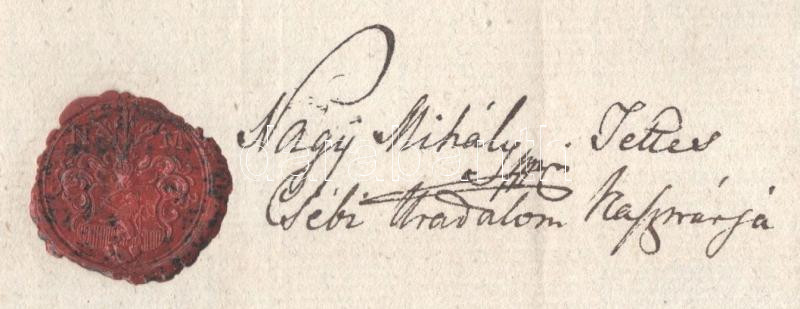 Nagÿ Mihály. Tettes
Csébi Uradalom Kasznárja
N M